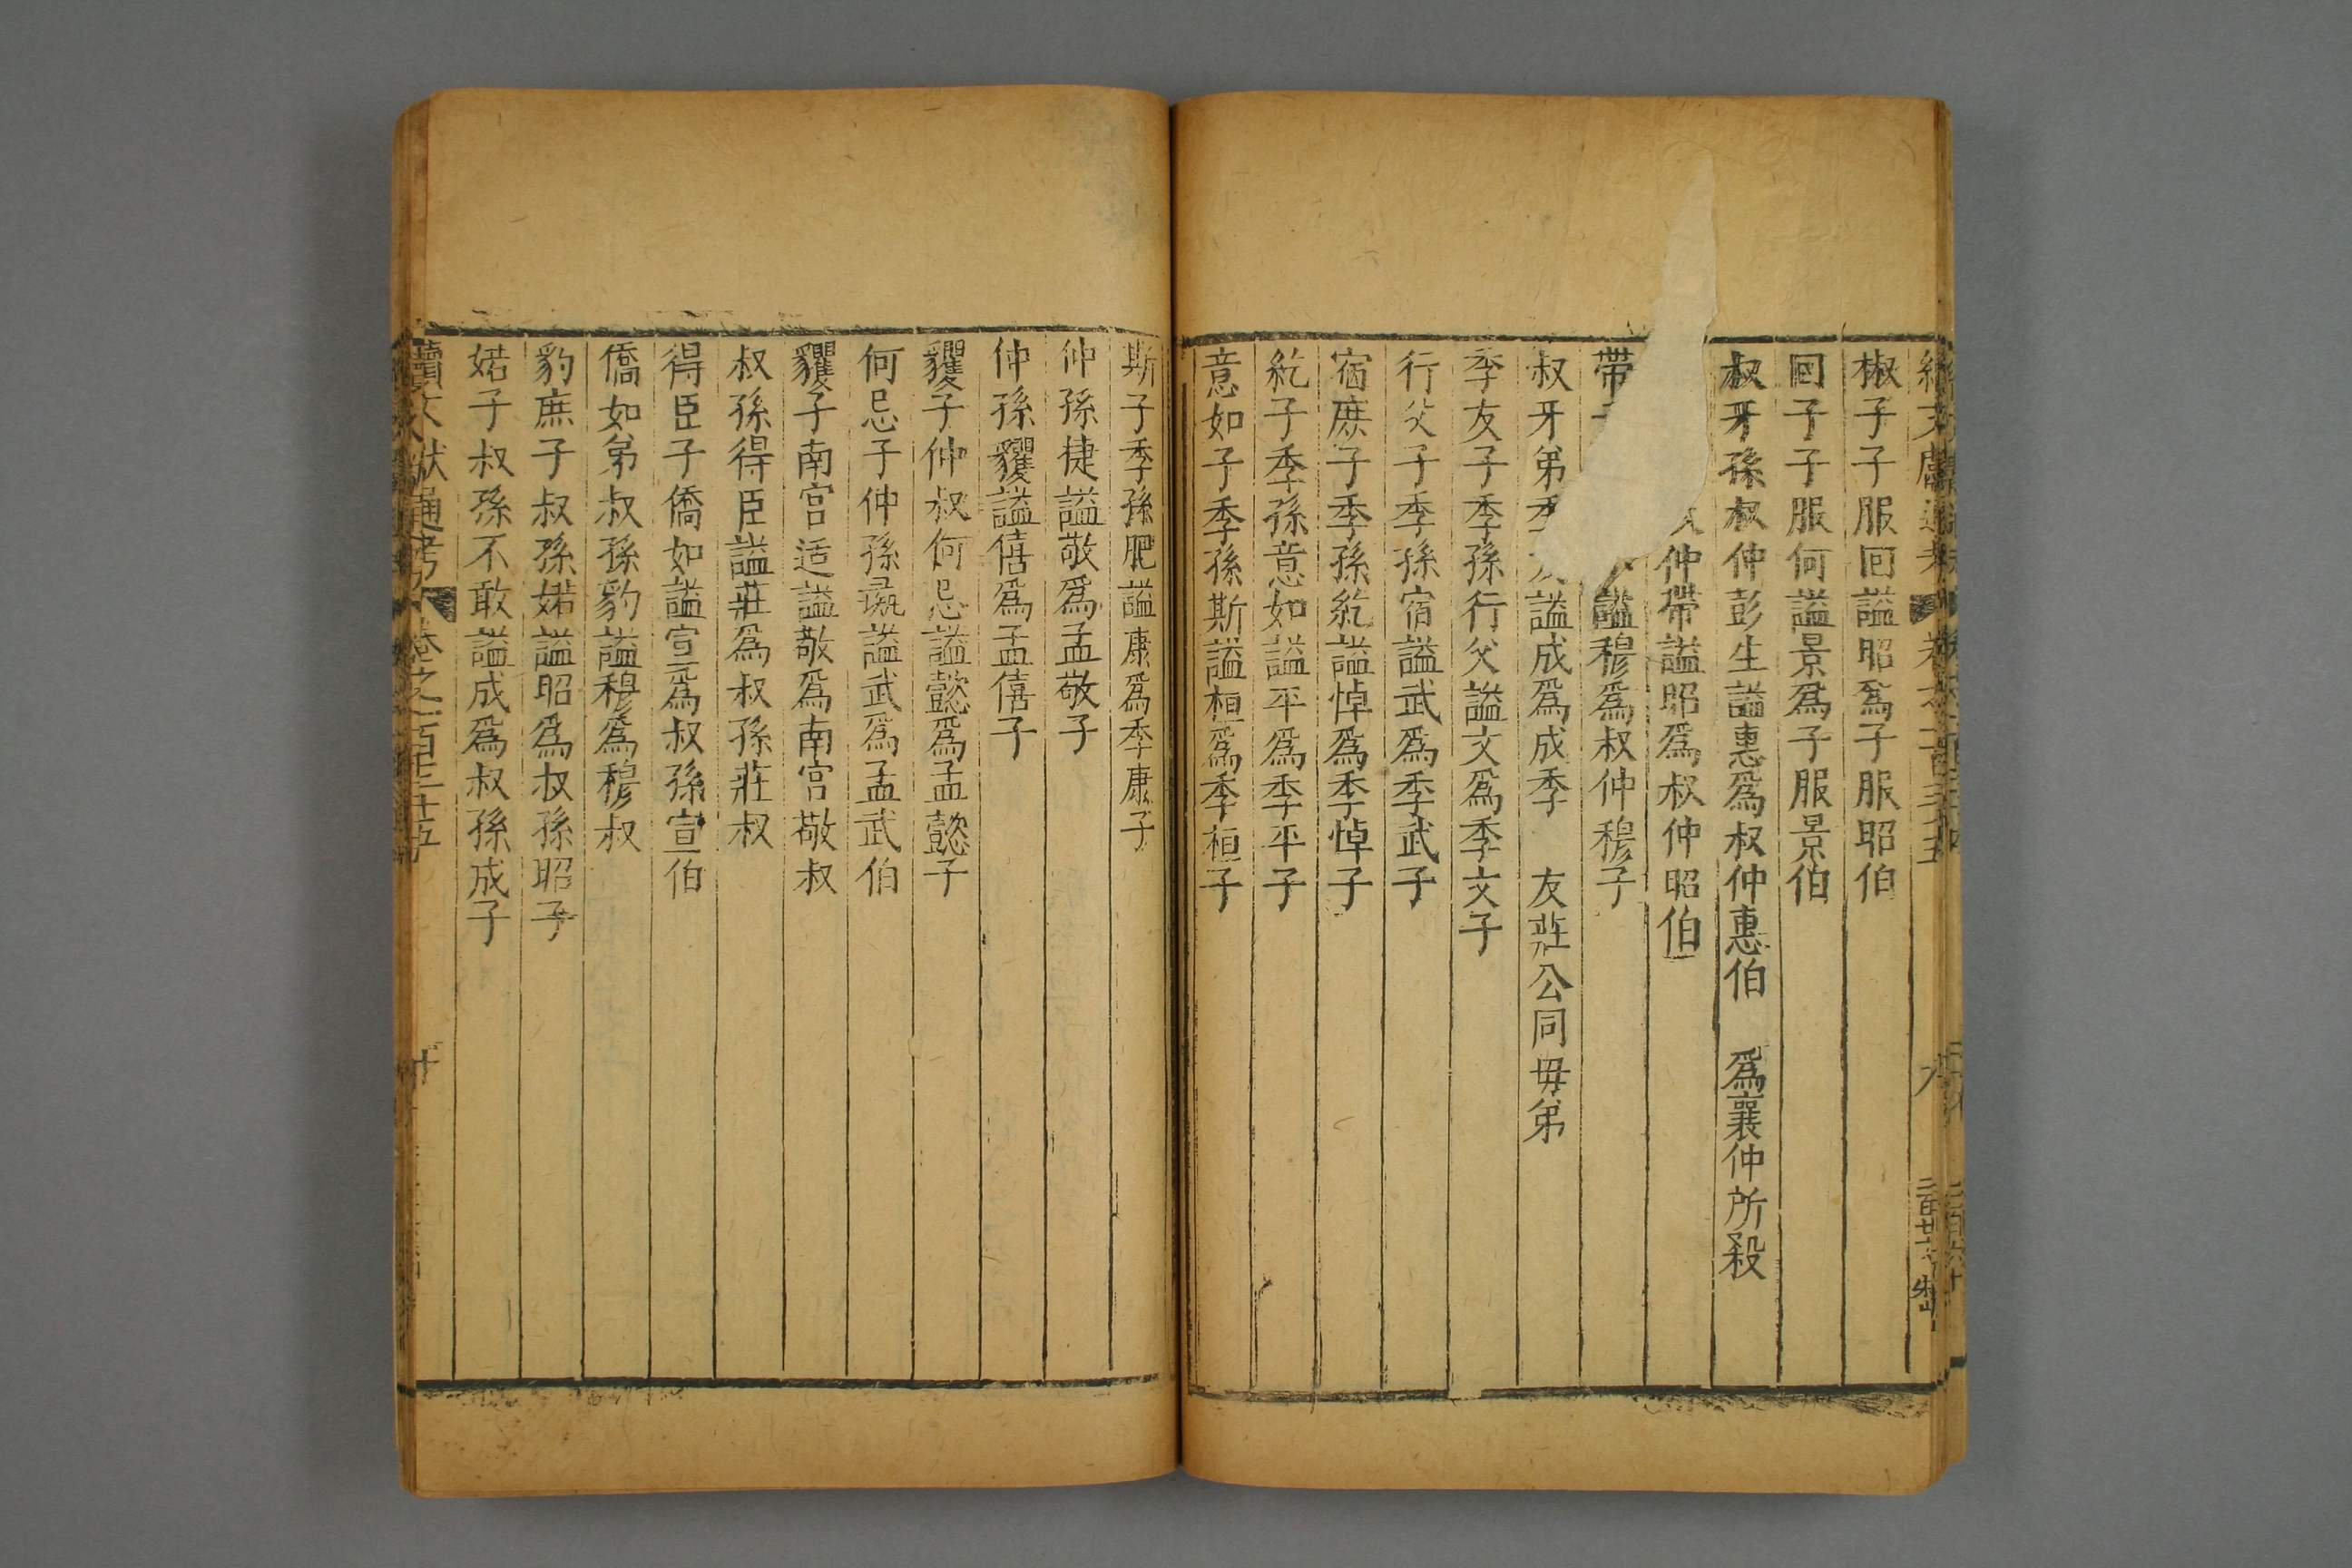 椒子子服回謚昭爲子服昭伯
回子子服何謚景爲子服景伯
叔牙孫叔仲彭生謚惠爲叔仲惠伯 爲襄仲所殺
仲帶謚昭爲叔仲昭伯
帶 謚穆爲叔仲穆子
叔牙弟季友謚成爲成季 友莊公同毋弟
季友子季孫行父謚文爲季文子
行父子季孫宿謚武爲季武子
宿庶子季孫紇謚悼爲季悼子
紇子季孫意如謚平爲季平子
意如子季孫斯謚桓爲季桓子
斯子季孫肥謚康爲季康子
仲孫捷謚敬爲孟敬子
仲孫貜謚僖爲孟僖子
貜子仲叔何忌謚懿爲孟懿子
何忌子仲孫彘謚武爲孟武伯
貜子南宮适謚敬爲南宮敬叔
叔孫得臣謚莊爲叔孫莊叔
得臣子僑如謚宣爲叔孫宣伯
僑如弟叔孫豹謚穆爲穆叔
豹庶子叔孫婼謚昭爲叔孫昭子
婼子叔孫不敢謚成爲叔孫成子
續文獻通考 卷之一百三十五 十